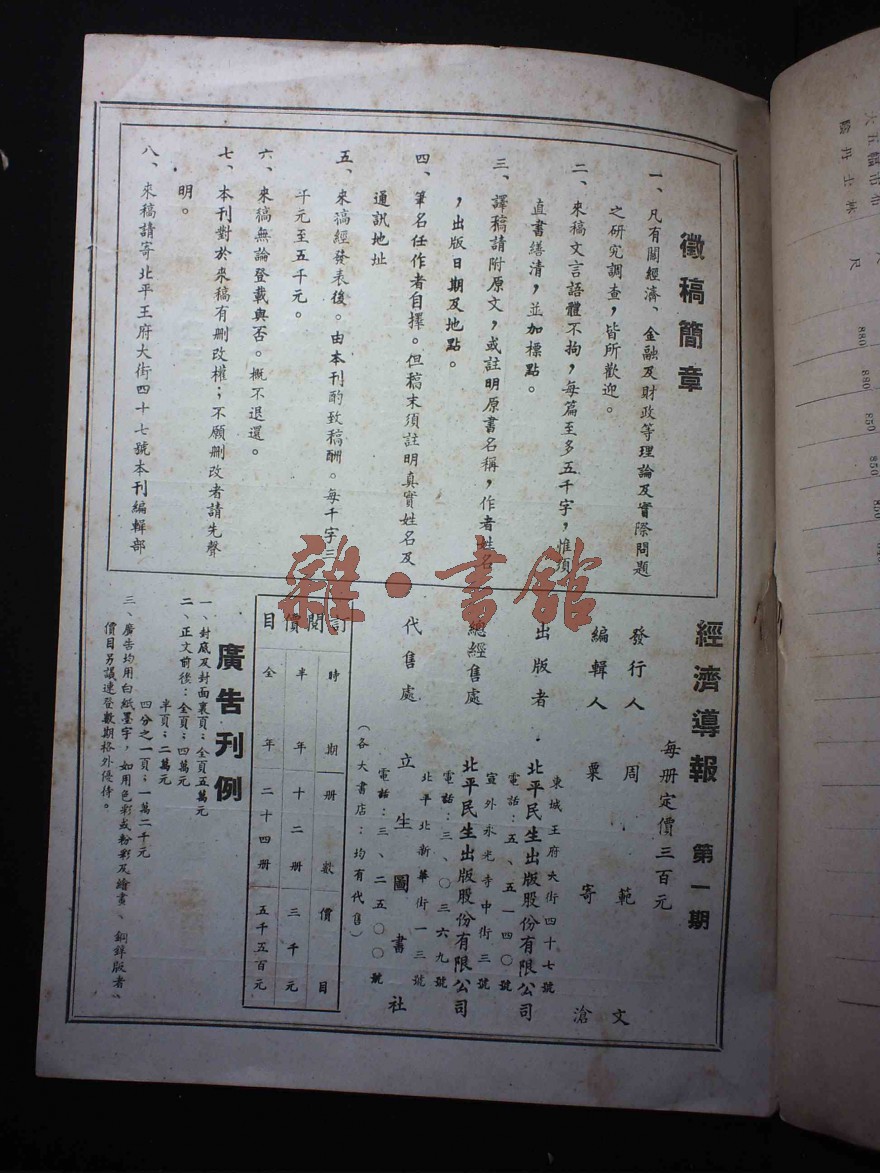 徵稿簡章
一、凡有關經濟、金融及財政等理論及實際問題
之研究調查，皆所歡迎。
二、來稿文言語體不拘，每篇至多五千字，惟須
直書繕清，並加標點。
三、譯稿請附原文，或註明原書名稱，作者姓名
，出版日期及地點。
四、筆名任作者自擇。但稿末須註明真實姓名及
通訊地址
五、來稿經發表後。由本刊酌致稿酬。每千字三
千元至五千元。
六、來稿無論登載與否。概不退還。
七、本刊對於來稿有刪改權；不願刪改者請先聲
明。
八、來稿請寄北平王府大街四十七號本刊編輯部
經濟導報 第一期
每册定價三百元
發行人 周範文
編輯人 粟寄滄
東城王府大街四十七號
出版者 北平民生出版股份有限公司
電話：五、五一四〇號
宣外永光寺中街三號
總經售處 北平民生出版股份有限公司
電話：三、〇三六九號
北平北新華街一三號
代售處 立生圖書社
電話：三、二五〇〇號
（各大書店：均有代售）
訂閱價目
時期 册數 價目
半年 十二册 三千元
全年 二十四册 五千五百元
廣告刊例
一、封底及封面裏頁：全頁五萬元
二、正文前後：全頁：四萬元
半頁：二萬元
四分之一頁：一萬二千元
三、廣告均用白紙墨字，如用色彩或粉彩及繪畫、銅鋅版者、
價目另議連登數期格外優待。
雜·書館
880
880
850
850